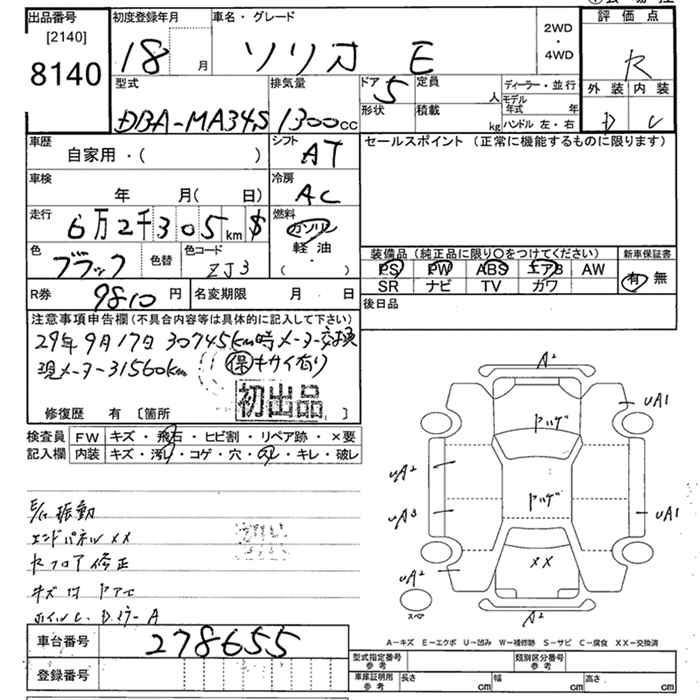 出品番号 [2140] 8140
初度登録年月 18 月
車名・グレード ソリオ E
2WD・4WD
評価点 R
外装 D 内装 C
型式 DBA-MA34S
排気量 1300cc
ドア 5 形状
定員 人
積載 kg
ディーラー・並行
モデル年式 年
ハンドル 左・右
車歴 自家用・( )
シフト AT
セールスポイント (正常に機能するものに限ります)
車検 年 月( 日)
冷房 AC
走行 6万2千305km $
燃料 ガソリン 軽油 ・( )
色 ブラック 色替
色コード ZJ3
装備品 (純正品に限り○をつけてください)
新車保証書
PS PW ABS エアB AW
有 無
SR ナビ TV カワ
R券 9810 円
名変期限 月 日
後日品
注意事項申告欄 (不具合内容等は具体的に記入して下さい)
29年9月17日 30745km時メーター交換
現メーター31560km 保 キサイ有り
初出品
修復歴 有 [箇所 ]
検査員記入欄
FW キズ・飛石・ヒビ割・リペア跡・×要
内装 キズ・汚レ・コゲ・穴・スレ・キレ・破レ
E/G振動
エンドパネル××
Rフロア修正
A² UA1
ヤハゲ
UA²
ヤハゲ
UA³ UA1
××
UA²
スペア
A²
A-キズ E-エクボ U-凹み W-補修跡 S-サビ C-腐食 XX-交換済
車台番号 278655
登録番号
型式指定番号 参考
類別区分番号 参考
車庫証明用 参考 長さ cm 幅 cm 高さ cm